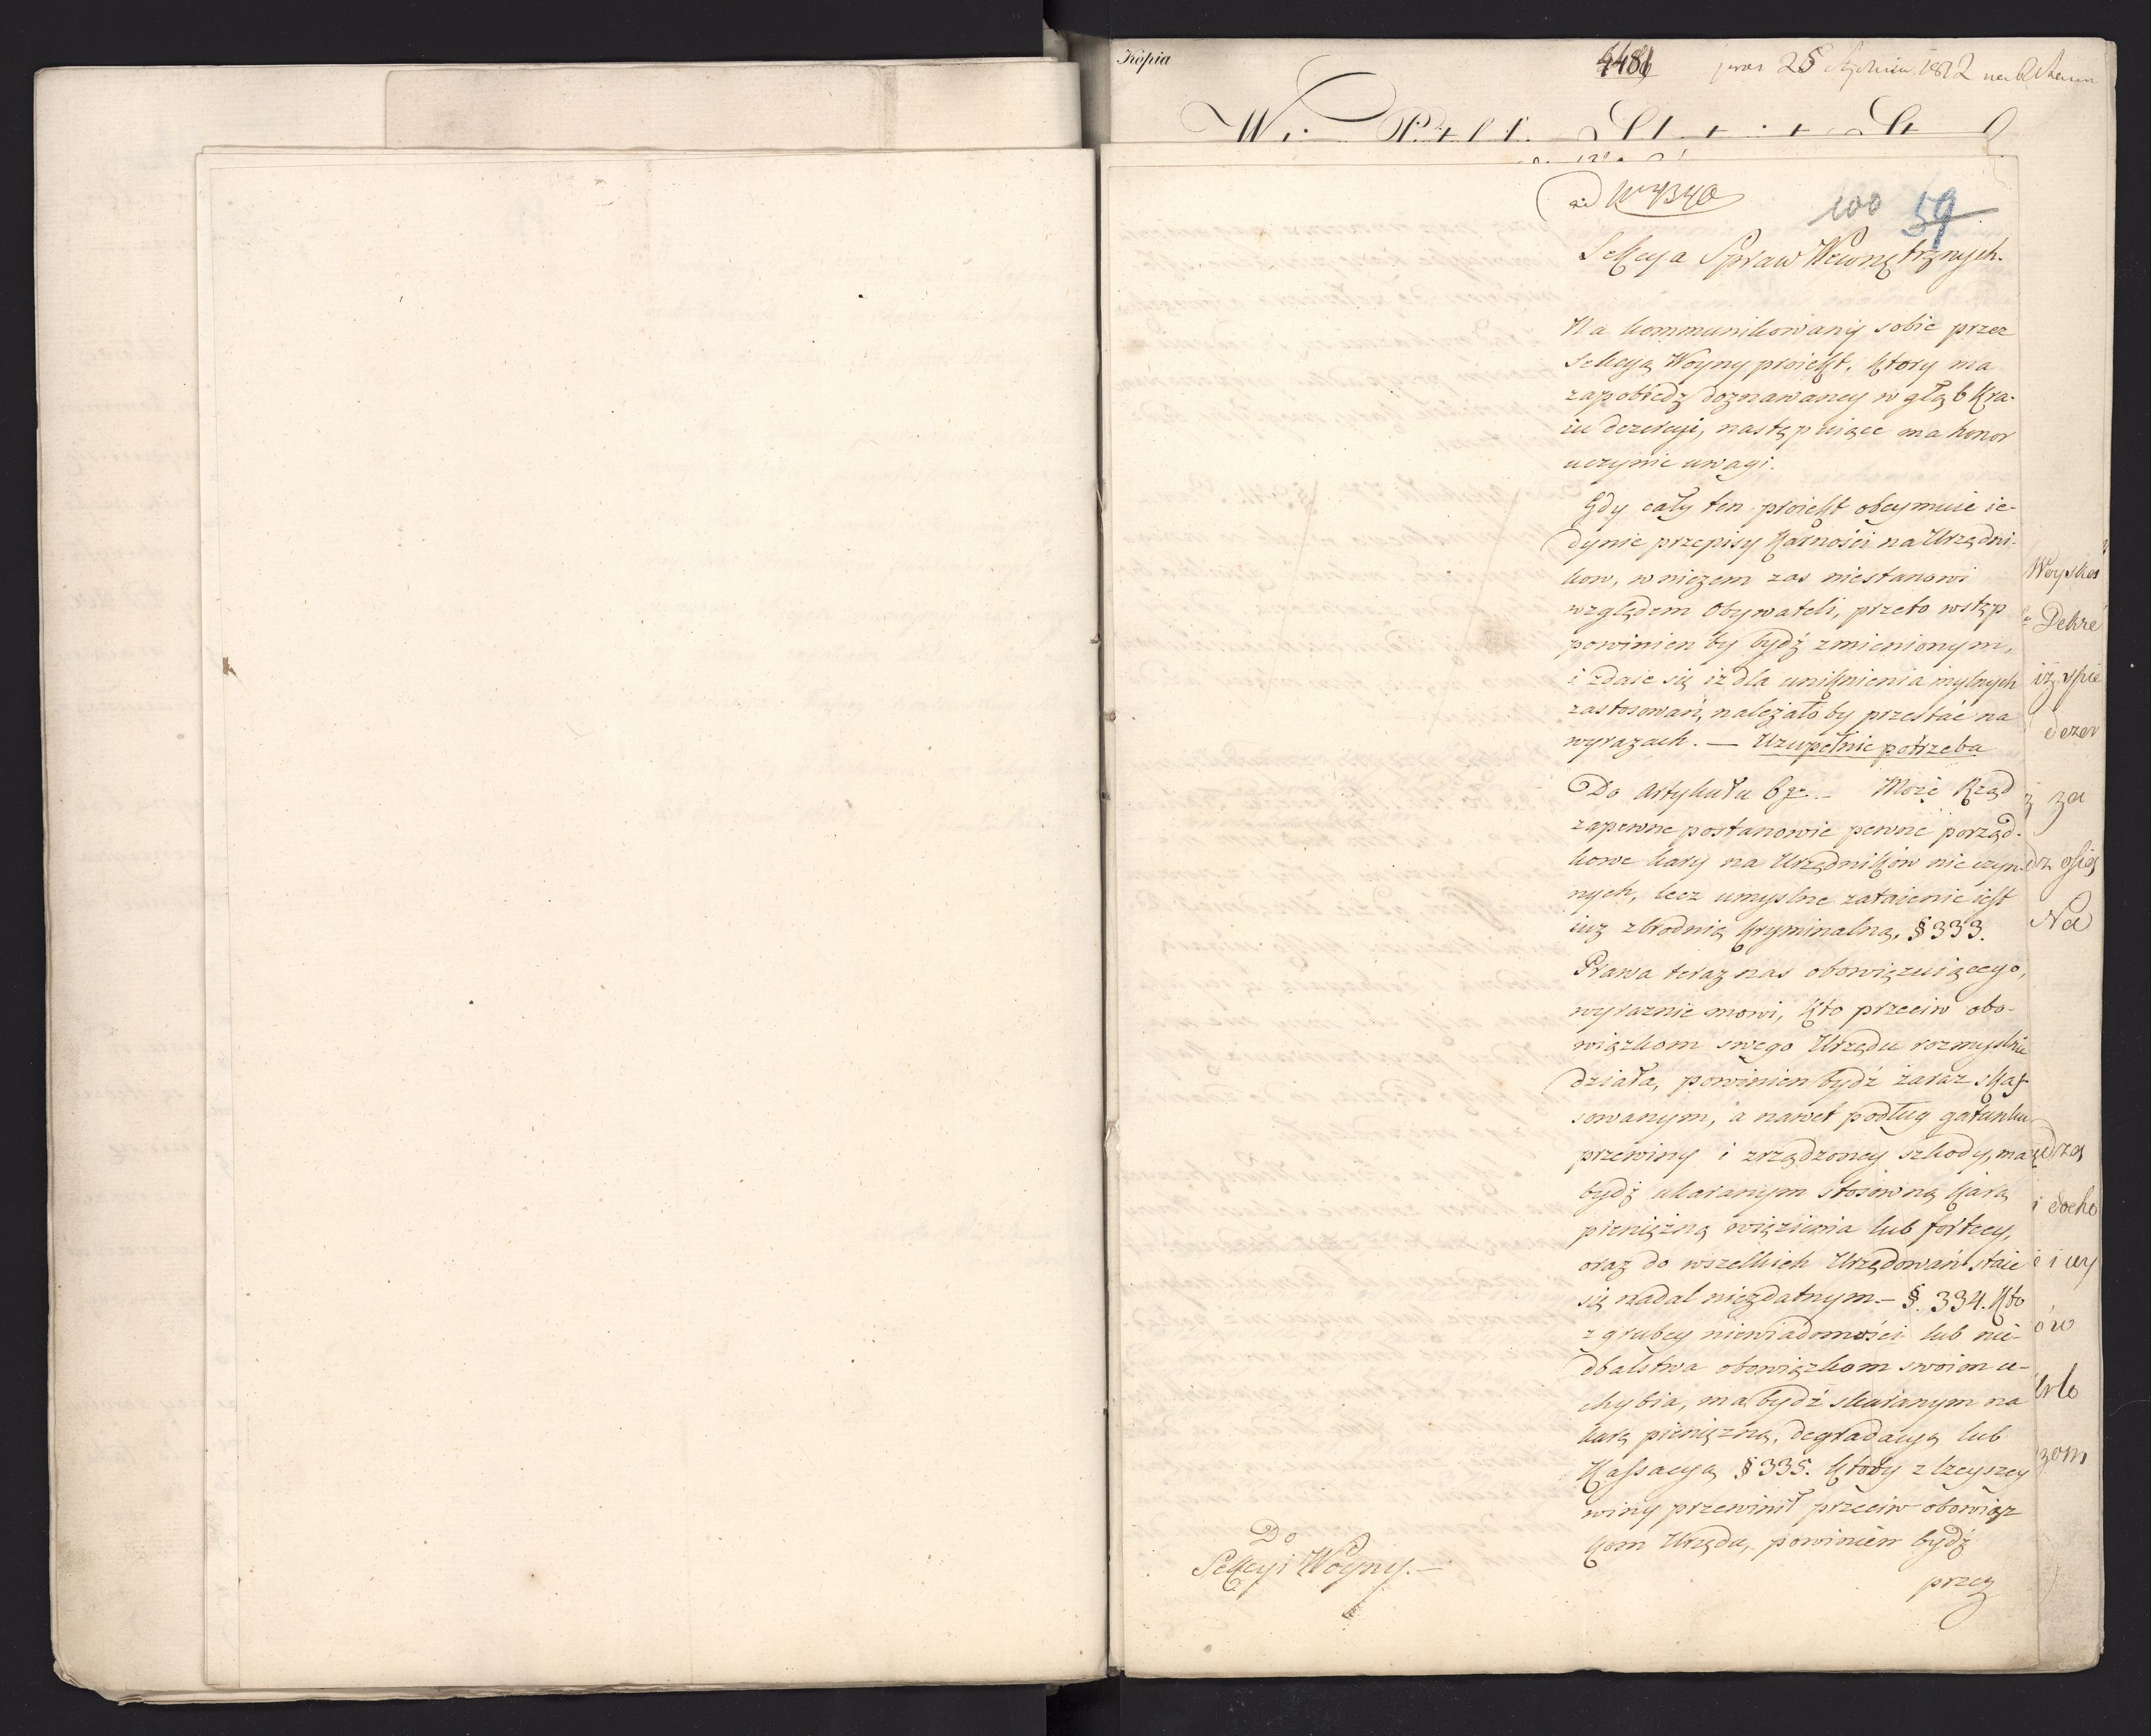 Kopia
4481
25 Stycznia 1812
ad Nr 4340
100 59
Sekcya Spraw Wewnętrznych.
Na kommunikowany sobie przez
Sekcyą Woyny proiekt, ktory ma
zapobiedz doznawaney w głąb Kra-
iu dezercyi, następuiące ma honor
uczynic uwagi.
Gdy cały ten proiekt obeymuie ie-
dynie przepisy karności na Urzędni-
kow, w niczem zas niestanowi
względem Obywateli, przeto wstęp
powinien by bydź zmienionym,
i zdaie się iż dla uniknienia mylnych
zastosowań, należało by przestać na
wyrazach. — Uzupełnic potrzeba
Do Artykułu 6go — Może Rząd
zapewne postanowic pewne porząd-
kowe kary na Urzędników nie czyn-
nych, lecz umyslne zataienie iest
iuż zbrodnią kryminalną, § 333.
Prawa teraz nas obowiązuiącego,
wyraznie mowi, kto przeciw obo-
wiązkom swego Urzędu rozmyslnie
działa, powinien bydź zaraz skas-
sowanym, a nawet podług gatunku
przewiny i zrządzoney szkody, ma
bydź ukaranym stosowną karą
pieniężną więzienia lub fortecy,
oraz do wszelkich Urzędowań staie
się nadal niezdatnym. — §. 334. Kto
z grubey niewiadomości lub nie-
dbalstwa obowiązkom swoim u-
chybia, ma bydź skaranym na
karę pieniężną, degradacyą lub
Kassacyą § 335. ktoby z lzeyszey
winy przewinił przeciw obowiąz
kom Urzędu, powinien bydź
przez
Do
Sekcyi Woyny. —
Woyska
Dekre
iż spie
dezer
ż za
Na
ędzą
i docho
ów
zom